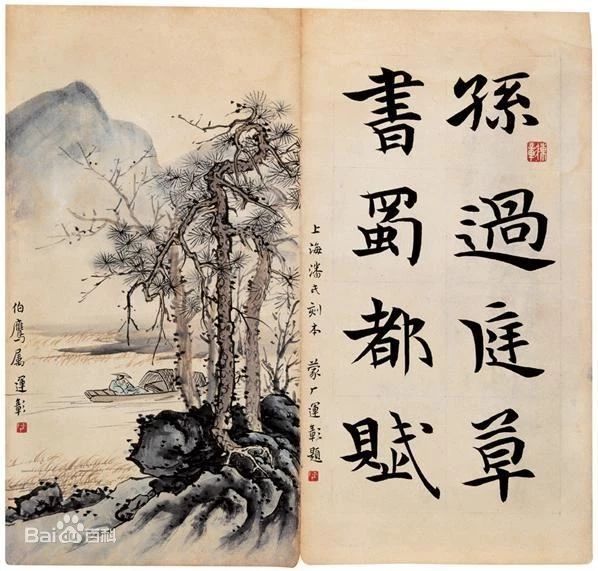 孫過庭草
書蜀都賦
上海潘氏刻本 蒙厂運彰題
伯鷹屬 運彰
Bai百科